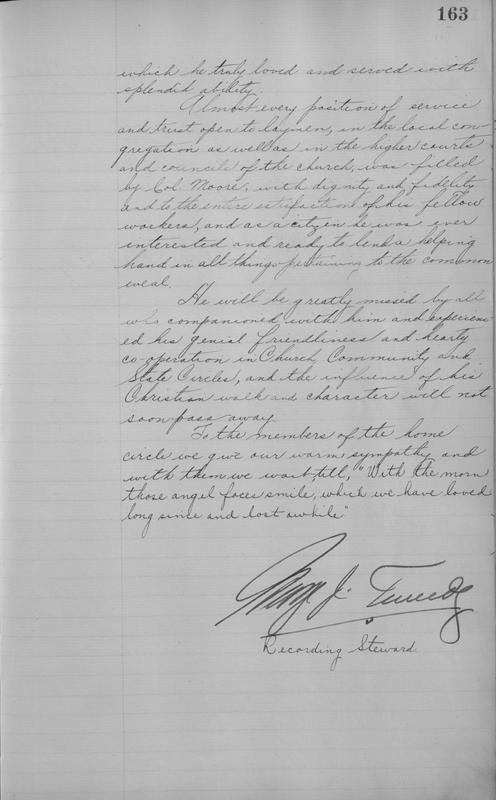 163
which he truly loved and served with
splendid ability.
Almost every position of service
and trust open to laymen, in the local con-
gregation as well as in the higher courts
and councils of the church, was filled
by Col. Moore, with dignity and fidelity
and to the entire satisfaction of his fellow
workers, and as a citizen he was ever
interested and ready to lend a helping
hand in all things pertaining to the common
weal.
He will be greatly missed by all
who companioned with him and experienc-
ed his genial friendliness and hearty
co-operation in Church, Community and
State Circles, and the influence of his
Christian walk and character will not
soon pass away.
To the members of the home
circle we give our warm sympathy and
with them we wait, till, "With the morn
those angel faces smile, which we have loved
long since and lost awhile"
J.
Recording Steward